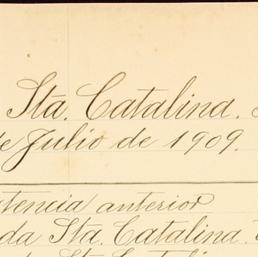 Sta. Catalina.
de Julio de 1909.
tencia anterior
da Sta. Catalina.